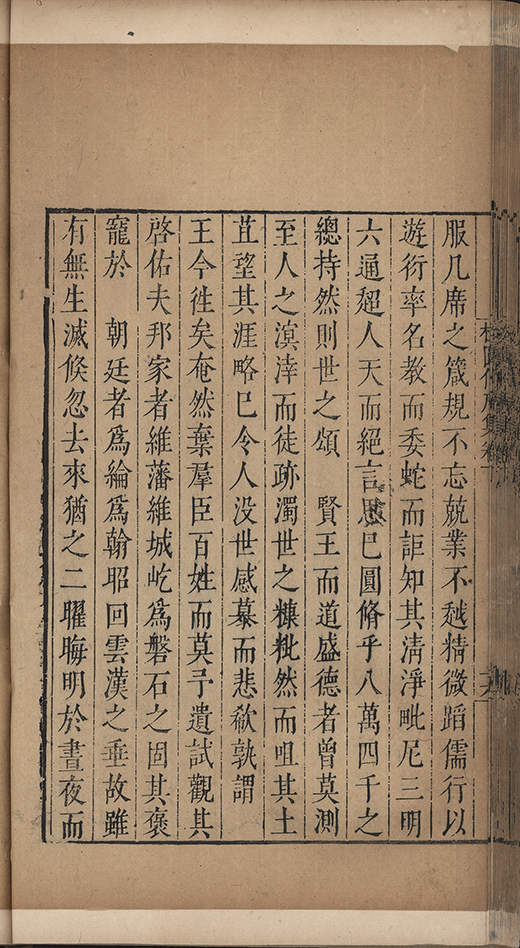 服几席之箴規不忘兢業不越精微蹈儒行以
遊衍率名教而委蛇而詎知其清淨毗尼三明
六通超人天而絕言思巳圓脩乎八萬四千之
總持然則世之頌　賢王而道盛德者曾莫測
至人之溟涬而徒跡濁世之糠粃然而咀其土
苴望其涯略巳令人没世感慕而悲欷孰謂
王今徃矣奄然棄羣臣百姓而莫予遺試觀其
啓佑夫邦家者維藩維城屹爲磐石之固其褒
寵於　朝廷者爲綸爲翰昭回雲漢之垂故雖
有無生滅倐忽去來猶之二曜晦明於晝夜而